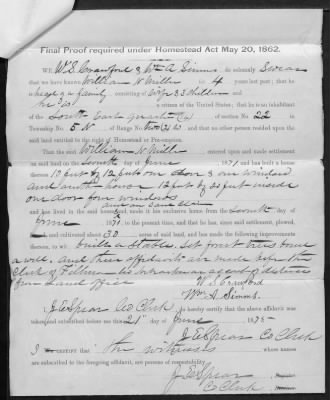 Final Proof required under Homestead Act May 20, 1862.
WE, W. S. Crawford & Wm A Simms do solemnly Swear
that we have known William N. Mills for 4 years last past; that he
head of a family consisting of Wife & 3 Children and
he is a citizen of the United States; that he is an inhabitant
of the South East quarter (¼) of section No. 22 in
Township No. 5 N of Range No. Two (2) W. and that no other person resided upon the said
land entitled to the right of Homestead or Pre-emption.
That the said William N. Mills entered upon and made settlement
on said land on the day of June 1871 and has built a house
thereon 10 feet by 12 feet one door & one window
and another house 12 feet by 20 feet inside
one door four windows
and has lived in the said house and made it his exclusive home from the day of
June to the present time, and that he has, since said settlement, plowed,
and cultivated about 30 acres of said land, and has made the following improvements
thereon, to wit: built a Stable. Set fruit trees bored
a well. And their affidavits are made before the
Clerk of
Land office
W. S. Crawford
Wm. A. Simms.
I, J. E. Spear Co Clerk do hereby certify that the above affidavit was
taken and subscribed before me this 21st day of June 1875
J. E. Spear Co Clerk
I certify that the witnesses whose names
are subscribed to the foregoing affidavit, are persons of respectability.
J. E. Spear
Co Clerk